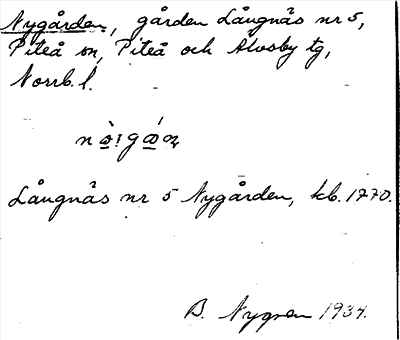 Nygården, gården Långnäs nr 5,
Piteå sn, Piteå och Älvsby tg,
Norrb. l.
Långnäs nr 5 Nygården, kb. 1770.
B. Nygren 1934.